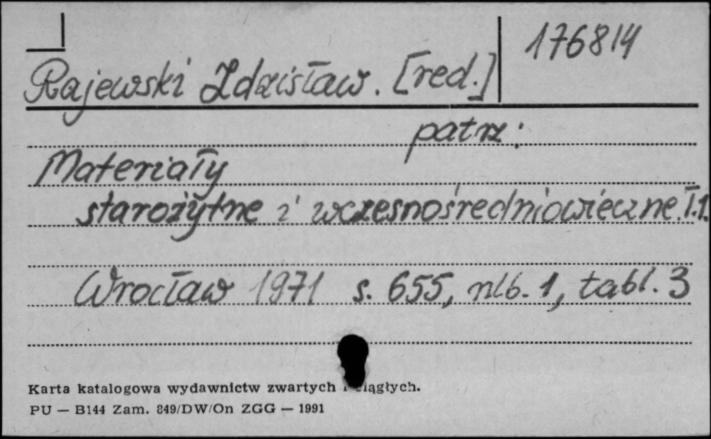 176814
Rajewski Zdzisław. [red.]
patrz:
Materiały
starożytne i wczesnośredniowieczne. T.1.
Wrocław 1971 s. 655, nlb. 1, tabl. 3
Karta katalogowa wydawnictw zwartych i ciągłych.
PU — B144 Zam. 849/DW/On ZGG — 1991